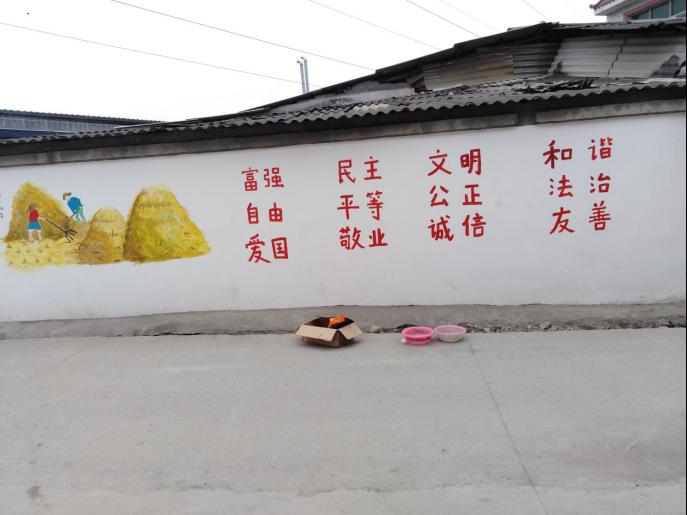 富强 民主 文明 和谐
自由 平等 公正 法治
爱国 敬业 诚信 友善